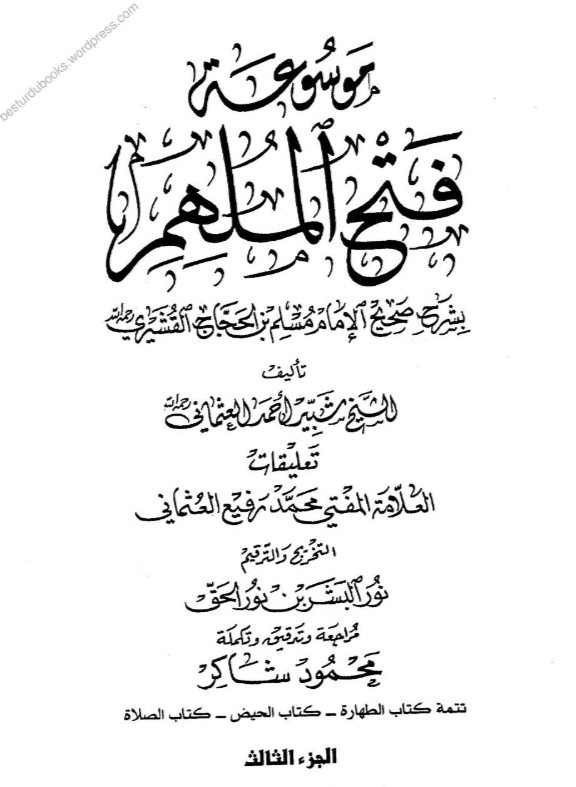 besturdubooks.wordpress.com
موسوعة
فتح الملهم
بشرح صحيح الإمام مسلم بن الحجاج القشيري رحمه الله
تأليف
الشيخ شبير أحمد العثماني رحمه الله
تعليقات
العلامة المفتي محمد رفيع العثماني
التخريج والترقيم
نور البشر بن نور الحق
مراجعة وتدقيق وتكملة
محمود شاكر
تتمة كتاب الطهارة – كتاب الحيض – كتاب الصلاة
الجزء الثالث